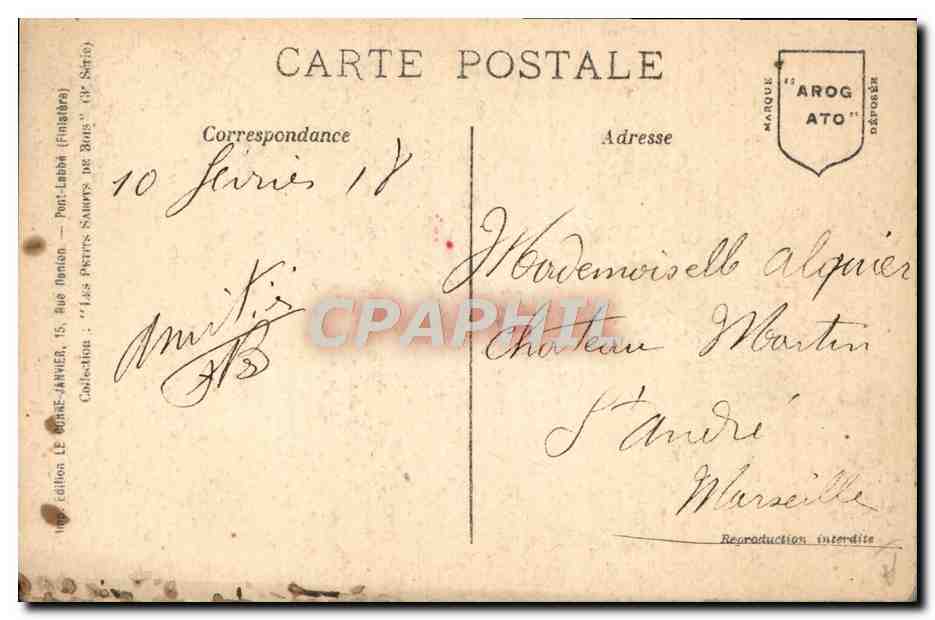 CARTE POSTALE
Correspondance
Adresse
MARQUE
"AROG
ATO"
DÉPOSÉE
10 février 18
Amitiés
Mademoiselle Alquier
Chateau Martin
St André
Marseille
Reproduction interdite
CPAPHIL
Imp. Edition LE JANVIER, 15, Rue — Pont-Labbé (Finistère)
Collection : "LES PETITS SABOTS DE BOIS" (3e Série)